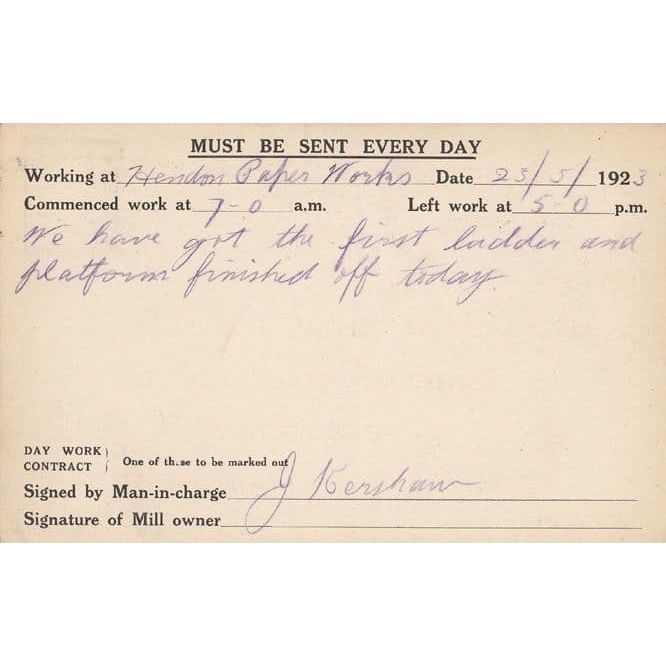 MUST BE SENT EVERY DAY
Working at Hendon Paper Works Date 23/5/1923
Commenced work at 7-0 a.m. Left work at 5-0 p.m.
We have got the first ladder and
platform finished off today.
DAY WORK
CONTRACT One of these to be marked out
Signed by Man-in-charge J Kershaw
Signature of Mill owner